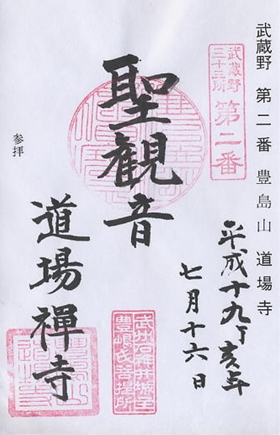 武蔵野 第二番 豊島山 道場寺
武蔵野
三十三所
第二番
平成十九丁亥年
七月十六日
聖観音
参拝
道場禅寺
武州石神井城主
豊嶋氏菩提所